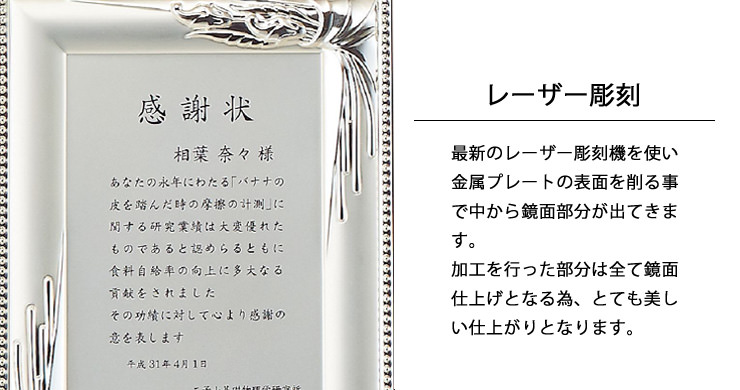 感謝状
相葉 奈々 様
あなたの永年にわたる「バナナの
皮を踏んだ時の摩擦の計測」に
関する研究業績は大変優れた
ものであると認めらるともに
食料自給率の向上に多大なる
貢献をされました
その功績に対して心より感謝の
意を表します
平成31年4月1日
レーザー彫刻
最新のレーザー彫刻機を使い
金属プレートの表面を削る事
で中から鏡面部分が出てきま
す。
加工を行った部分は全て鏡面
仕上げとなる為、とても美し
い仕上がりとなります。